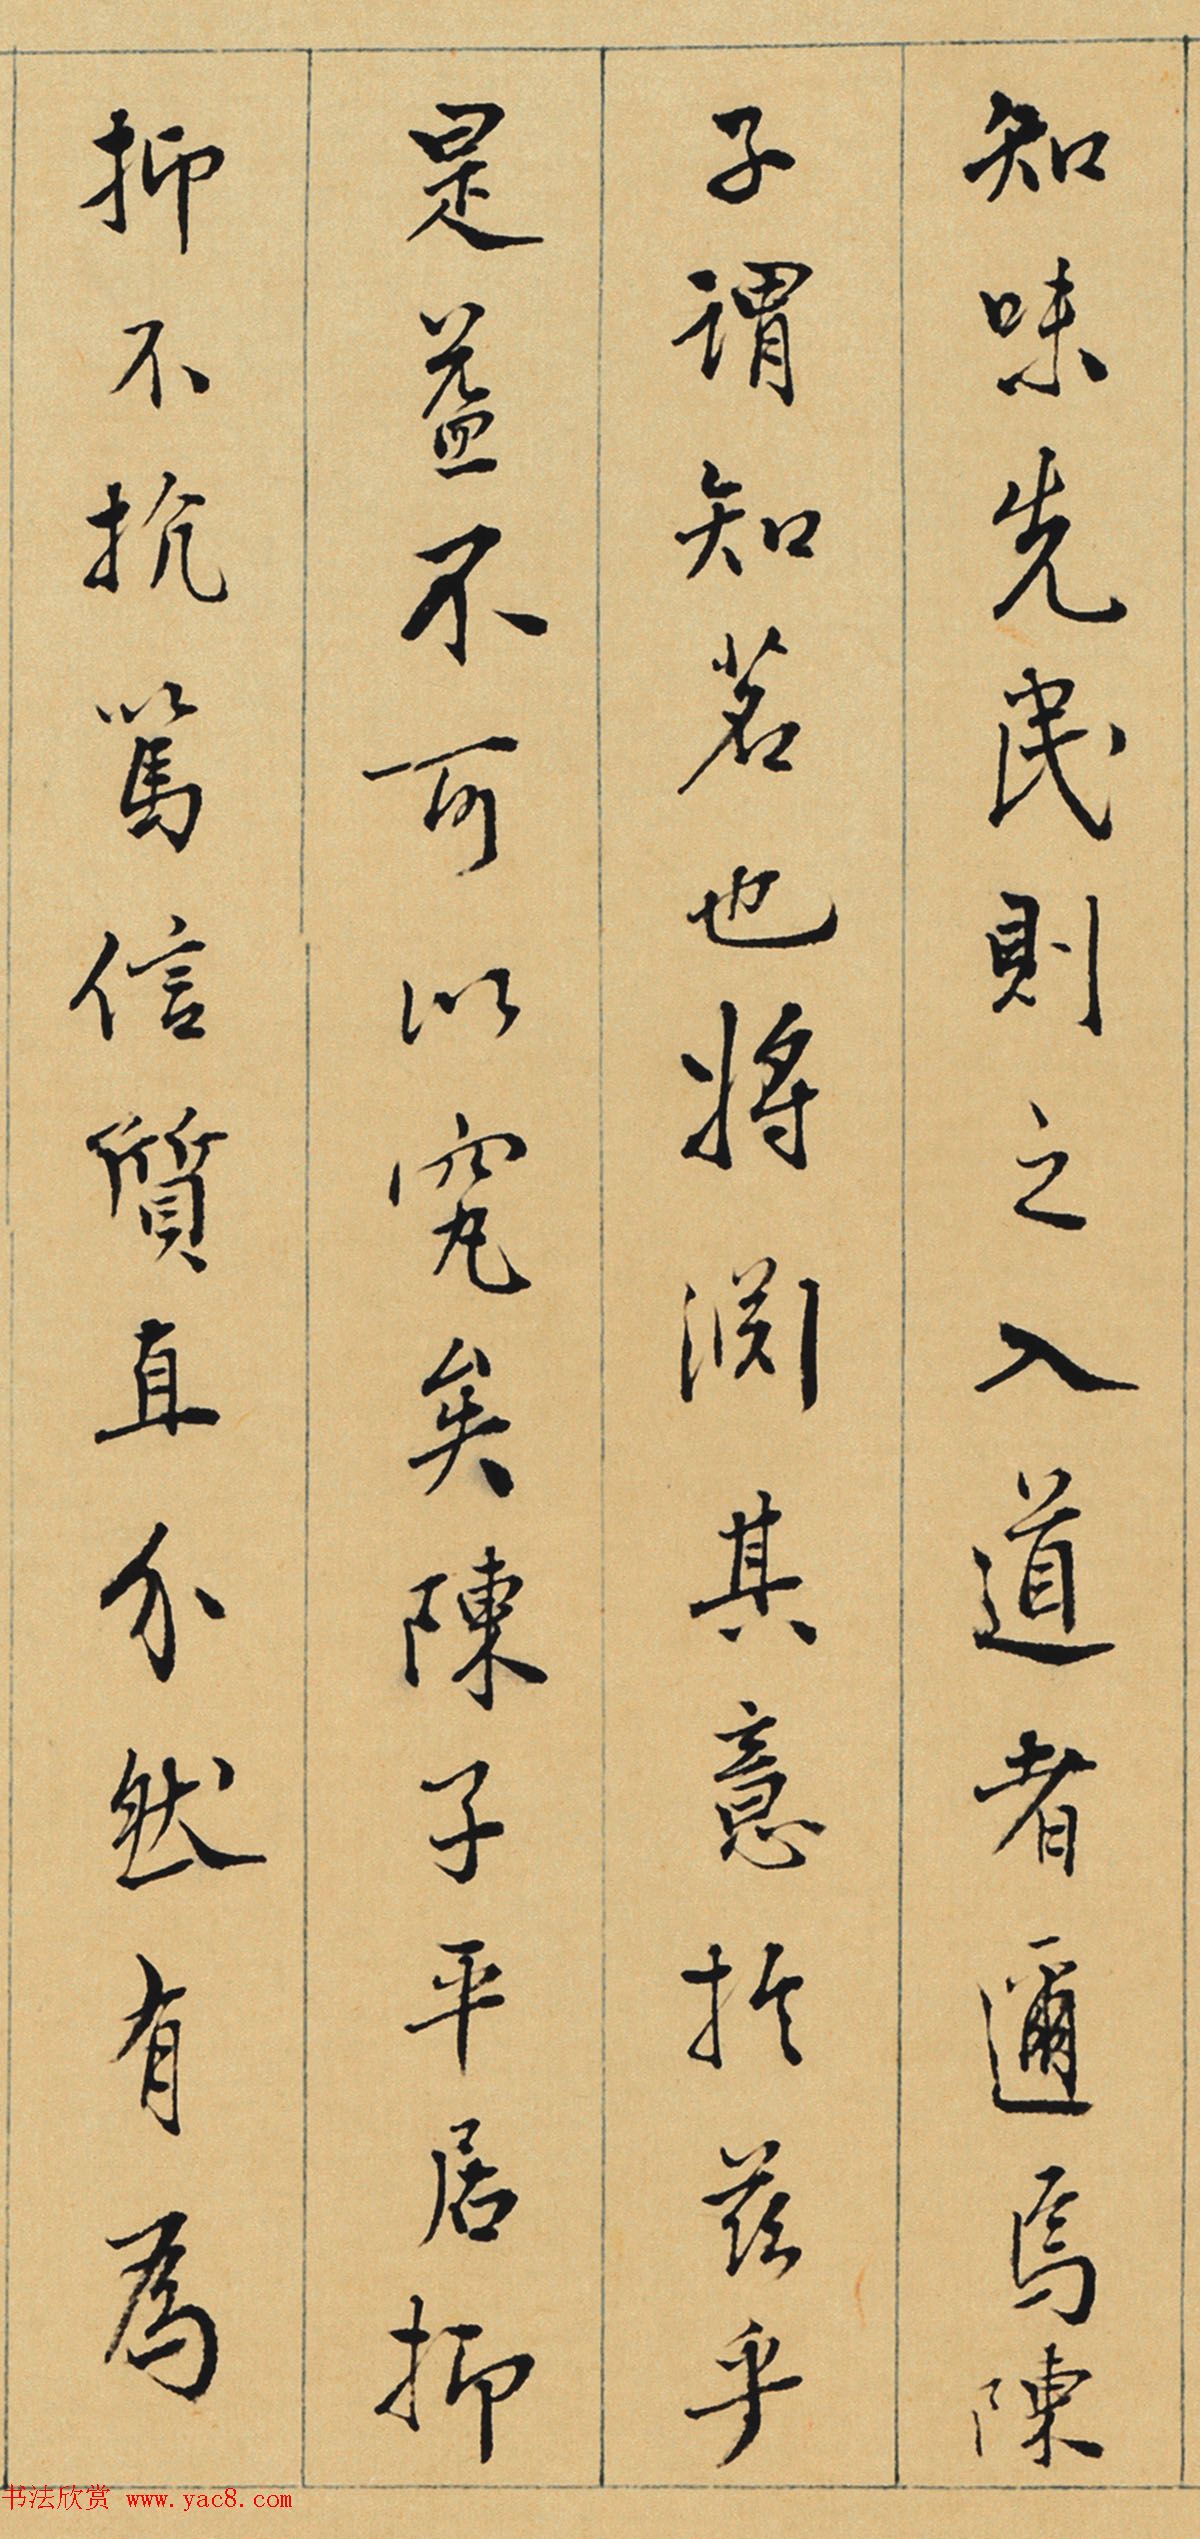 知味先民則之入道者邇焉陳
子謂知茗也將淵其意於茲乎
是益不可以究矣陳子平居抑
抑不抗篤信質直介然有為
书法欣赏 www.yac8.com